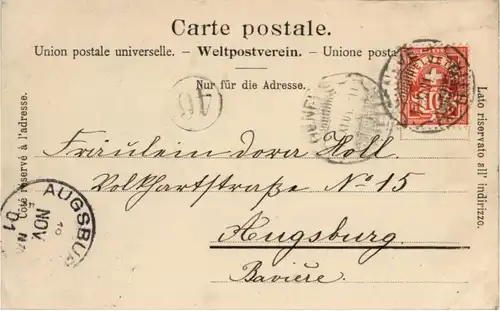 Carte postale.
Union postale universelle. – Weltpostverein. – Unione posta
Nur für die Adresse.
Côté réservé à l'adresse.
Lato riservato all' indirizzo.
46
10
Fräulein Dora Holl.
Volkhartstraße No 15
Augsburg
Bavière.
AUGSBU
NOV
01